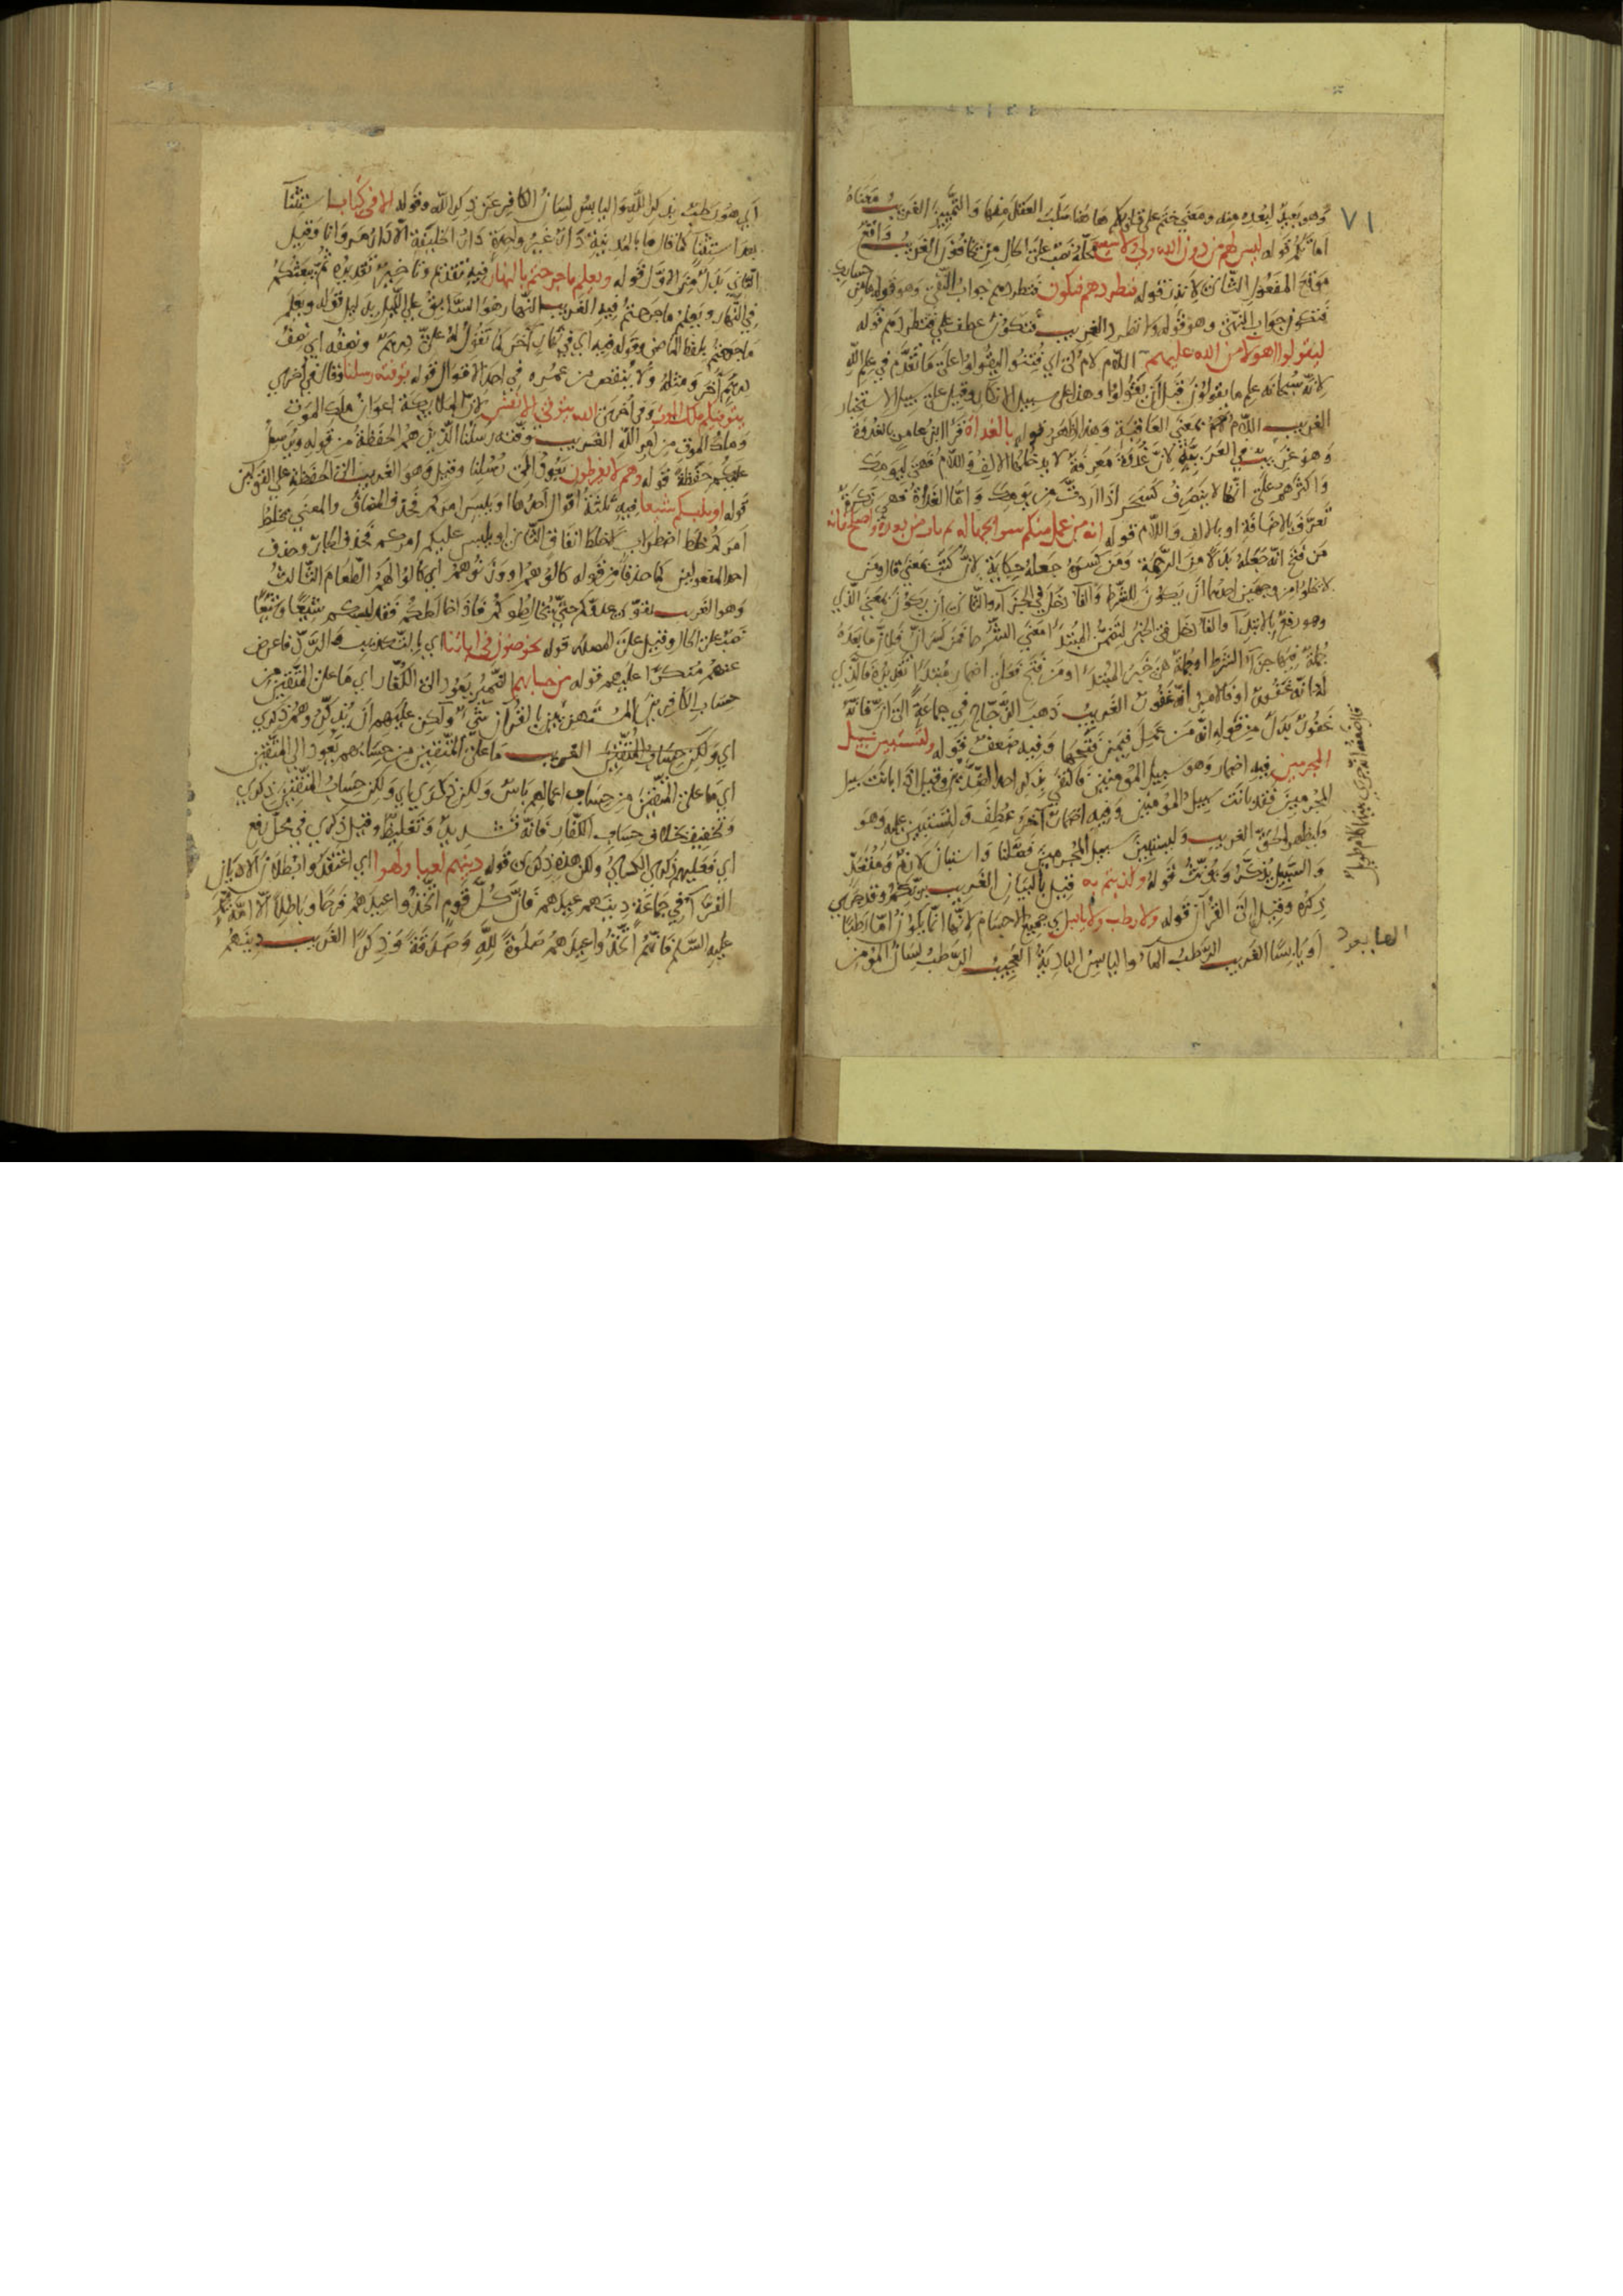 ٧١
وهو بعيد لبعده منه ومعنى ختم على قلوبكم هاهنا سلب العقل منها والتمييز الغريب معناه
اماتكم قوله ليس لهم من دون الله ولي ولا شفيع محله نصب على الحال من يخافون الغريب واقع
موقع المفعول الثاني لانذر قوله فتطردهم فتكون فتطردهم جواب النفي وهو قوله ما من حسابك
فتكون جواب النهي وهو قوله ولا تطرد الغريب فتكون عطف على فتطردهم قوله
ليقولوا اهؤلاء من الله عليهم اللام لام كي اي فتنوا ليقولوا على ما تقدم في علم الله
لانه سبحانه علم ما يقولون قبل ان يقولوا وهذا على سبيل الانكار وقيل على سبيل الاستخبار
الغريب اللام لام بمعنى العاقبة وهذا اظهر قوله بالغداة قرا ابن عامر بالغدوة
وهو غريب في العربية لان غدوة معرفة لا يدخلها الالف واللام فهي ليومك
واكثرهم على انها لا ينصرف كسحر اذا اردت من يومك واما الغداة فهي نكرة
تعرف بالاضافة او بالالف واللام قوله انه من عمل منكم سوا بجهالة ثم تاب من بعده واصلح فانه
من فتح انه جعله بدلا من الرحمة ومن كسر جعله حكاية لان كتب بمعنى قال ومن
لا يخلوا من وجهين احدهما ان يكون للشرط والفاء دخل في الجزاء والثاني ان يكون بمعنى الذي
وهو رفع بالابتداء والفاء دخل في الخبر لتضمن المبتدا معنى الشرط فمن كسر ان فلان ما بعده
جملة من جزاء الشرط او جملة هي خبر المبتدا ومن فتح فعلى اضمار مبتدا تقديره فالذي
له انه غفور او فالامر انه غفور الغريب ذهب الزجاج في جماعة الى ان فانه
غفور بدل من قوله انه من عمل فيمن فتحها وفيه ضعف قوله ولتستبين سبيل
المجرمين فيه اضمار وهو سبيل المؤمنين فاكتفى بذكر احد الضدين وقيل اذا بانت سبيل
المجرمين فقد بانت سبيل المؤمنين وفيه اضمار آخر عطف ولتستبين عليه وهو
ليظهر الحق الغريب ولتستبين سبيل المجرمين فصلنا واستبان لازم ومتعد
والسبيل يذكر ويؤنث قوله وكذبتم به قيل بالبيان الغريب بربكم وقد جرى
ذكره وقيل الى القرآن قوله ولا رطب ولا يابس اي جميع الاجسام لانها انما يكون اما رطبا
او يابسا الغريب الرطب الماء واليابس البادية العجيب الرطب لسان المؤمن
اي هو رطب بذكر الله واليابس لسان الكافر عن ذكر الله وقوله الا في كتاب استثناء
بعد استثناء كما قال ما بالمدينة دار غير واحدة دار الخليفة الا دار مروانا وقيل
الثاني بدل من الاول قوله ويعلم ما جرحتم بالنهار فيه تقديم وتاخير تقديره ثم يبعثكم
في النهار ويعلم ما جرحتم فيه الغريب النهار هو السابق على الليل بدليل قوله ويعلم
ما جرحتم بلفظ الماضي وقوله فيه اي في نهار آخر كما تقول له علي درهم ونصفه اي نصف
درهم آخر ومثله ولا ينقص من عمره في احد الاقوال قوله توفته رسلنا وقال في اخرى
يتوفيكم ملك الموت وفي اخرى الله يتوفى الانفس لان الملائكة اعوان ملك الموت
وملك الموت من امر الله الغريب توفته رسلنا الذين هم الحفظة من قوله ويرسل
عليكم حفظة قوله وهم لا يفرطون يعود الى رسلنا وقيل وهو الغريب الى الحفظة على القولين
قوله او يلبسكم شيعا فيه ثلثة اقوال احدها او يلبس امركم فحذف المضاف والمعنى يخلط
امركم خلط اضطراب لا خلط اتفاق الثاني او يلبس عليكم امركم فحذف الجار وحذف
احد المفعولين كما حذفا من قوله كالوهم او وزنوهم اي كالوا لهم الطعام الثالث
وهو الغريب يقوي عدوكم حتى يخالطوكم فاذا خالطكم فقد لبسكم شيعا وشيعا
نصب على الحال وقيل على المصدر قوله يخوضون في اياتنا اي بالتكذيب والرد فاعرض
عنهم منكرا عليهم قوله من حسابهم الضمير يعود الى الكفار اي ما على المتقين من
حساب الخائضين المستهزئين بالقرآن شيء ولكن عليهم ان يذكروهم ذكرى
اي ولكن حساب المتقين الغريب ما على المتقين من حسابهم يعود الى المتقين
اي ما على المتقين من حساب اعمالهم باس ولكن ذكرى اي ولكن حساب المتقين ذكرى
وتخفيف بخلاف حساب الكفار فانه تشديد وتغليظ وقيل ذكرى في محل رفع
اي فعليهم ذكرى الكسائي ولكن هذه ذكرى قوله دينهم لعبا ولهوا اي اعتقدوا بطلان الاديان
الفراء في جماعة دينهم عيدهم فان كل قوم اتخذوا عيدهم فرحا وباطلا الا امة محمد
عليه السلم فانهم اتخذوا عيدهم صلوة لله وصدقة وذكرا الغريب دينهم